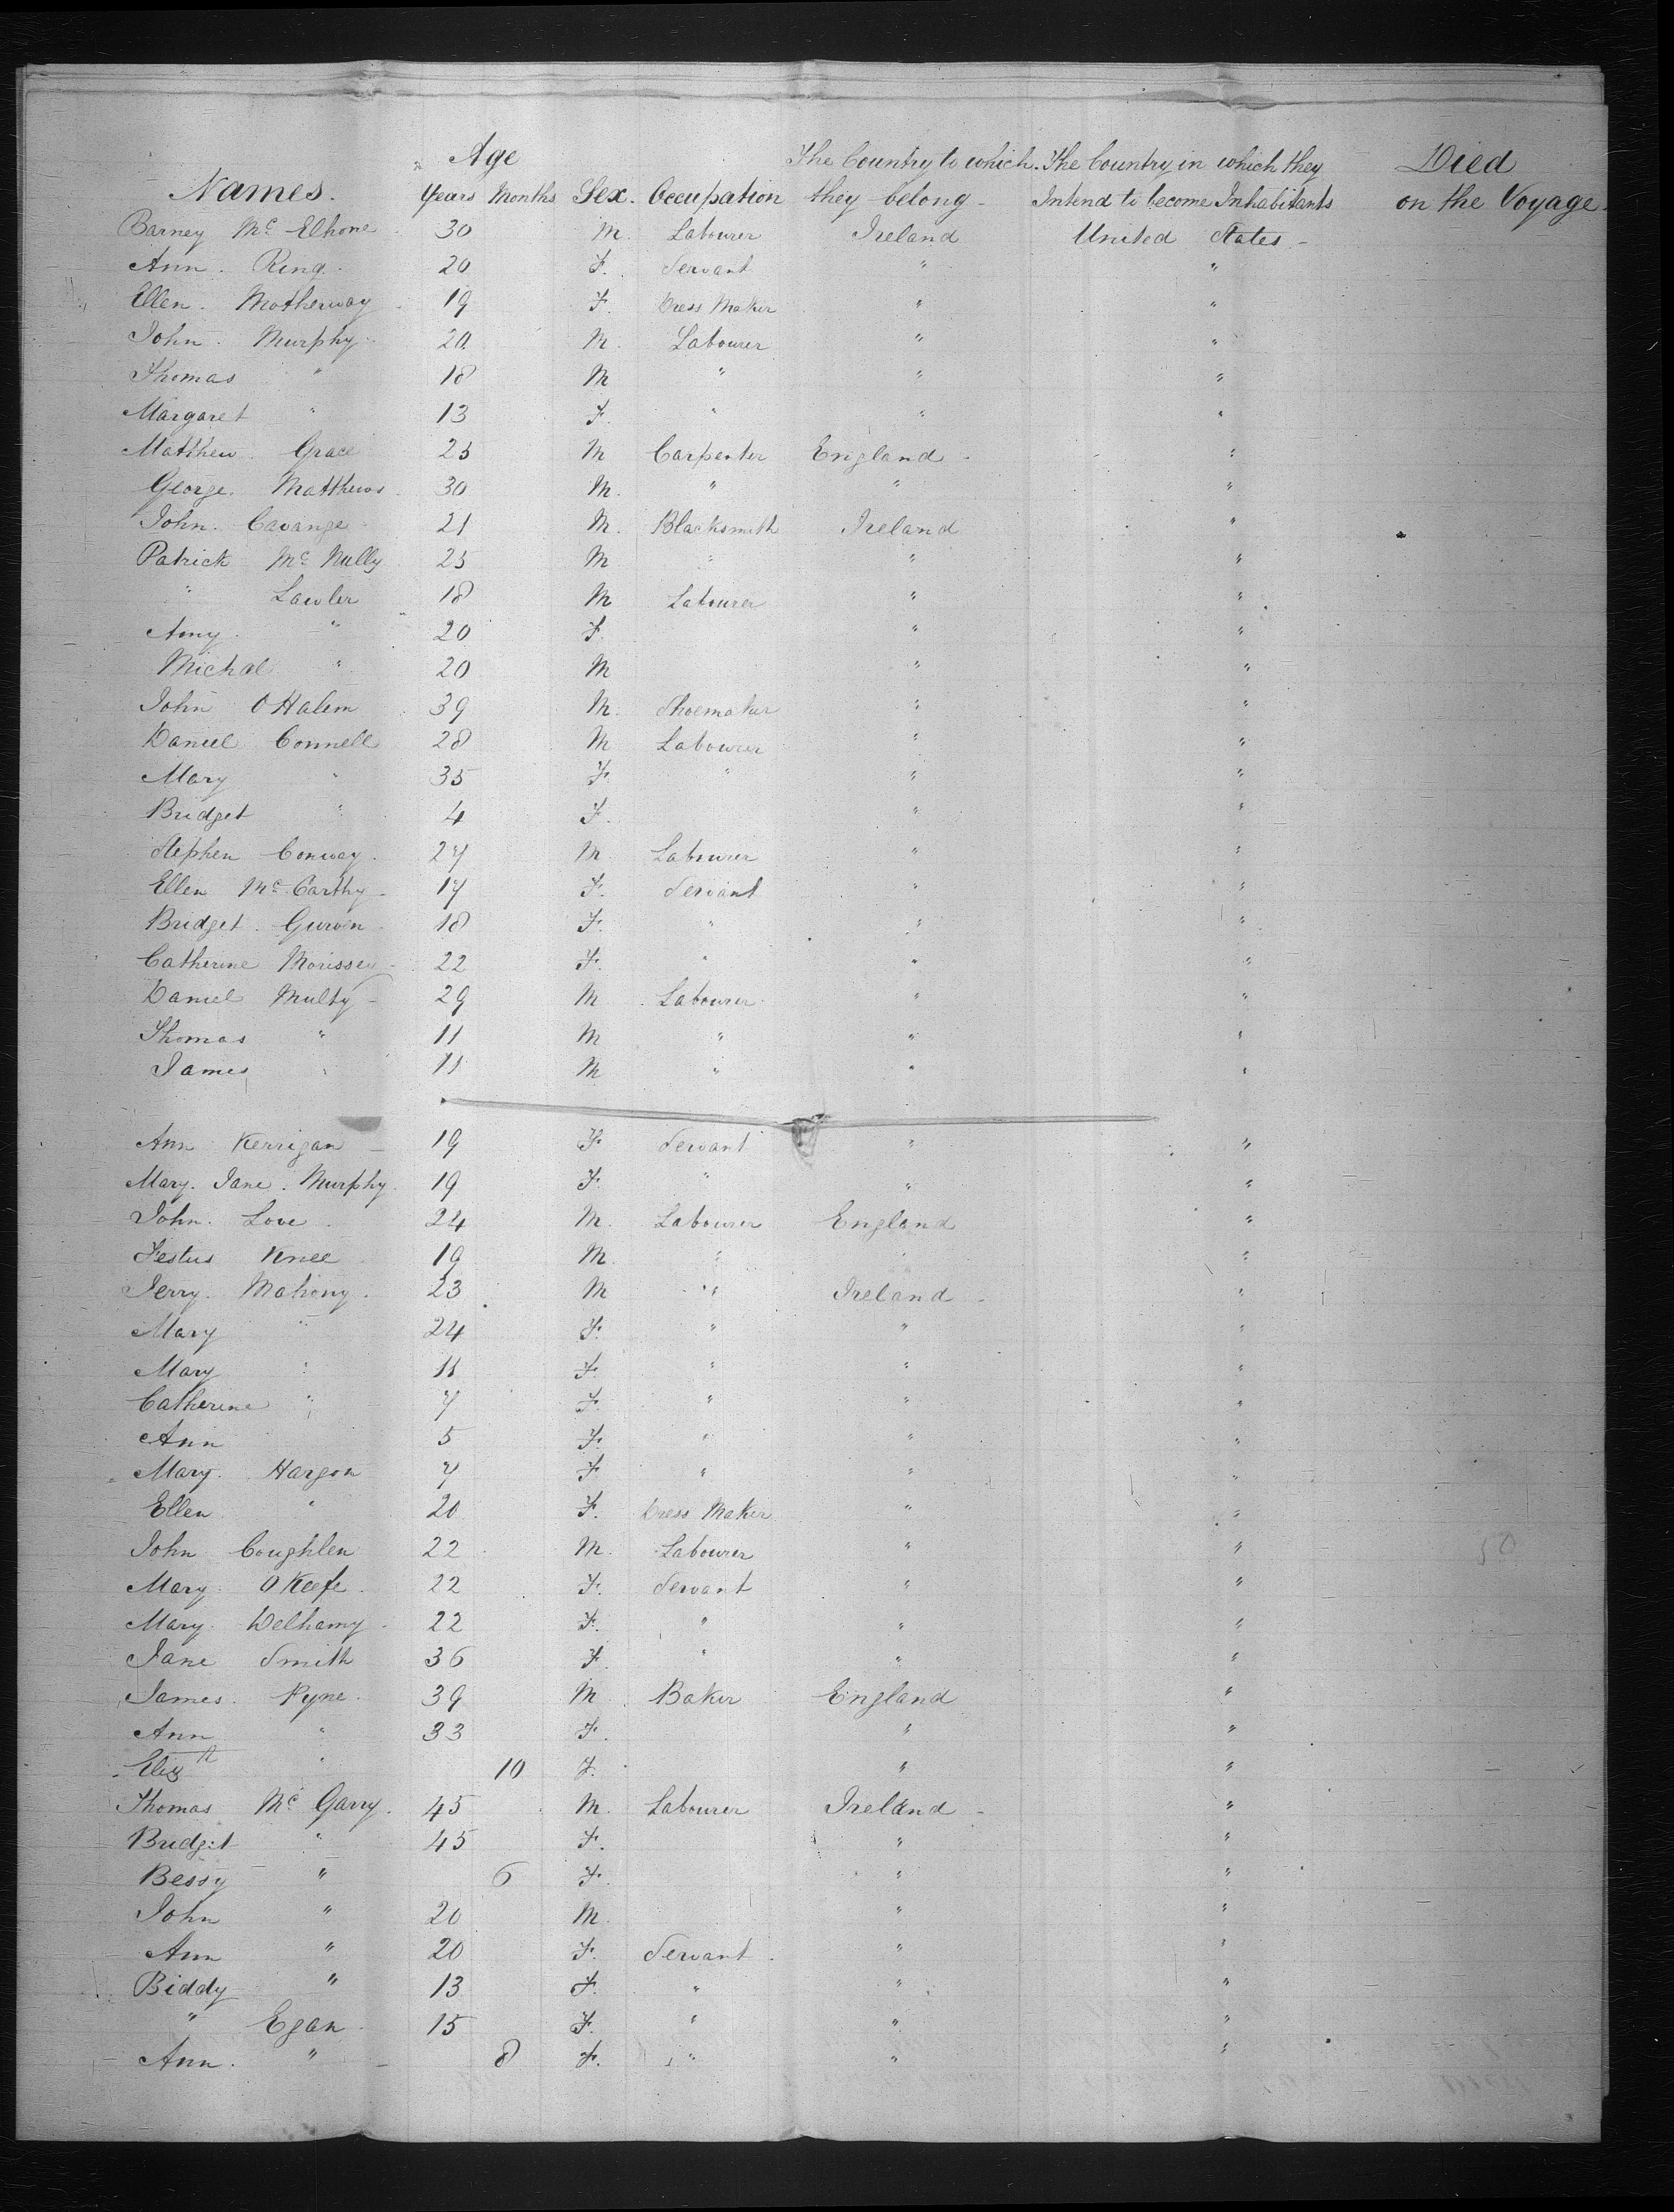 Age The Country to which The Country in which they Died
Names. Years Months Sex. Occupation they belong - Intend to become Inhabitants on the Voyage.
Barney Mc Elhone 30 M. Labourer Ireland United States -
Ann. Ring. 20 F. Servant " "
Ellen. Motherway 19 F. Dress Maker " "
John. Murphy 20 M. Labourer " "
Thomas " 18 M " " "
Margaret " 13 F. " " "
Matthew. Grace 25 M Carpenter England - "
George. Matthews 30 M. " " "
John. Cavange 21 M. Blacksmith Ireland "
Patrick Mc Nully 25 M " " "
" Lawler 18 M Labourer " "
Amy " 20 F " "
Michal " 20 M " "
John O Halem 39 M. Shoemaker " "
Daniel Connell 28 M Labourer " "
Mary " 35 F. " " "
Bridget " 4 F. " "
Stephen Conway. 27 M Labourer " "
Ellen Mc Carthy - 17 F. Servant " "
Bridget. Gurvin 18 F. " " "
Catherine Morissey 22 F. " " "
Daniel Multy - 29 M Labourer " "
Thomas " 11 M " " "
James " 11 M " " "
Ann Kerrigan - 19 F Servant " "
Mary. Jane. Murphy. 19 F. " " "
John. Love. 24 M. Labourer England "
Festus Knee 19 M " " "
Jerry. Mahony. 23 M " Ireland - "
Mary " 24 F. " " "
Mary " 11 F. " " "
Catherine " 7 F. " " "
Ann 5 F. " " "
Mary. Hargon 7 F " " "
Ellen " 20 F. Dress Maker " "
John Coughlen 22 M. Labourer " "
Mary O Keefe. 22 F. Servant " "
Mary. Delhamy - 22 F. " " "
Jane Smith 36 F " " "
James. Pyne. 39 M Baker England "
Ann " 33 F. " "
Elizth " 10 F. " "
Thomas Mc Garry. 45 M. Labourer Ireland - "
Bridget " 45 F. " "
Bessy " 6 F. " "
John " 20 M. " "
Ann " 20 F. Servant " "
Biddy " 13 F. " " "
" Egan 15 F. " " "
Ann. " 8 F. " " "